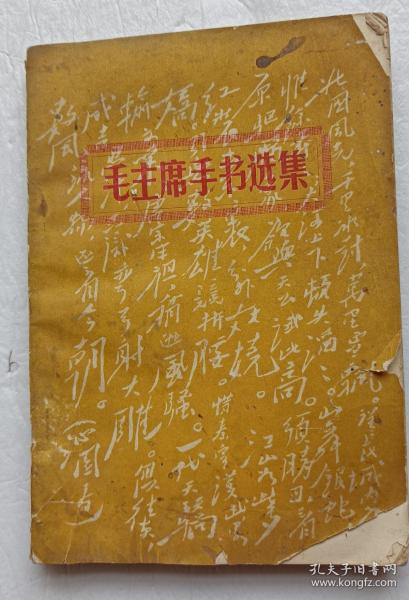 毛主席手书选集
北国风光千里冰封万里雪飘。望长城内
大河上下顿失滔滔。山舞银蛇
原驰欲与天公试比高。须晴日看
红分外妖娆。江山如此多
娇英雄竞折腰。惜秦皇汉武
输文宋祖稍逊风骚。一代天骄
成吉弯弓射大雕。俱往矣
数风流还看今朝。沁园春
孔夫子旧书网
www.kongfz.com